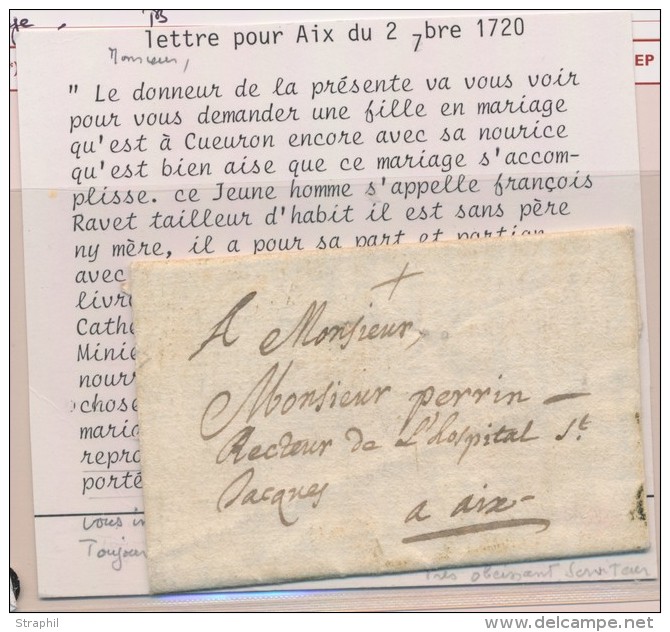 lettre pour Aix du 2 7bre 1720
Monsieur,
EP
" Le donneur de la présente va vous voir
pour vous demander une fille en mariage
qu'est à Cueuron encore avec sa nourice
qu'est bien aise que ce mariage s'accom-
plisse. ce Jeune homme s'appelle françois
Ravet tailleur d'habit il est sans père
ny mère, il a pour sa part et portion
avec
livr
Cathe
Minie
nourr
chose
maria
repro
porté
vous in
Toujour
très obeissant Serviteur
+
A Monsieur,
Monsieur perrin
Recteur de L'hospital St
Jacques
a aix
Straphil
www.delcampe.net